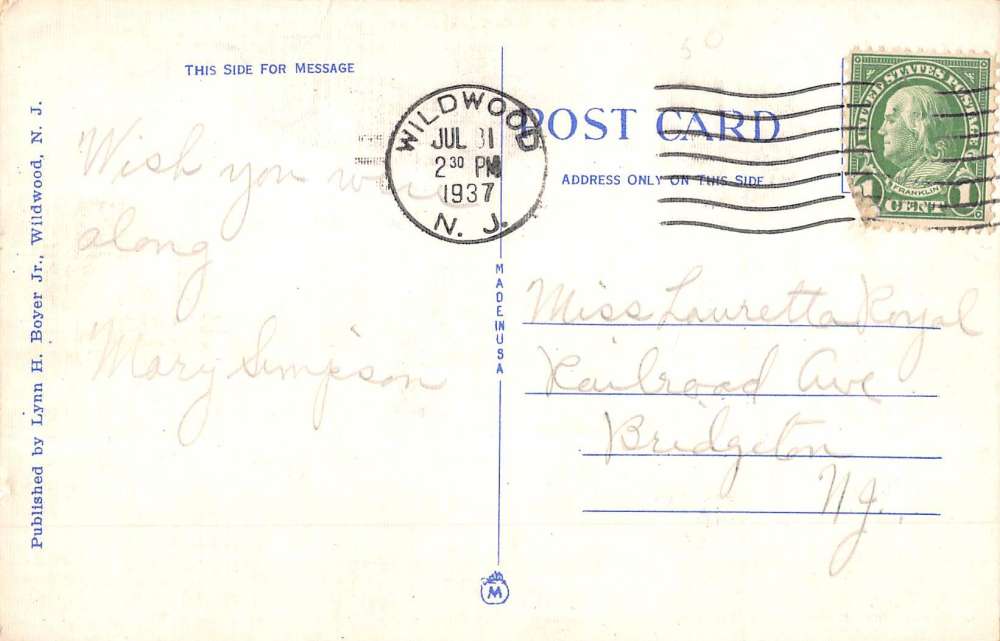 THIS SIDE FOR MESSAGE
Published by Lynn H. Boyer Jr., Wildwood, N. J.
Wish you were
along
Mary Simpson
WILDWOOD
JUL 31
2 30 PM
1937
N. J.
POST CARD
ADDRESS ONLY ON THIS SIDE
50
UNITED STATES POSTAGE
FRANKLIN
1 CENT 1
MADE IN USA
Miss Lauretta Royal
Railroad Ave
Bridgeton
NJ.
M